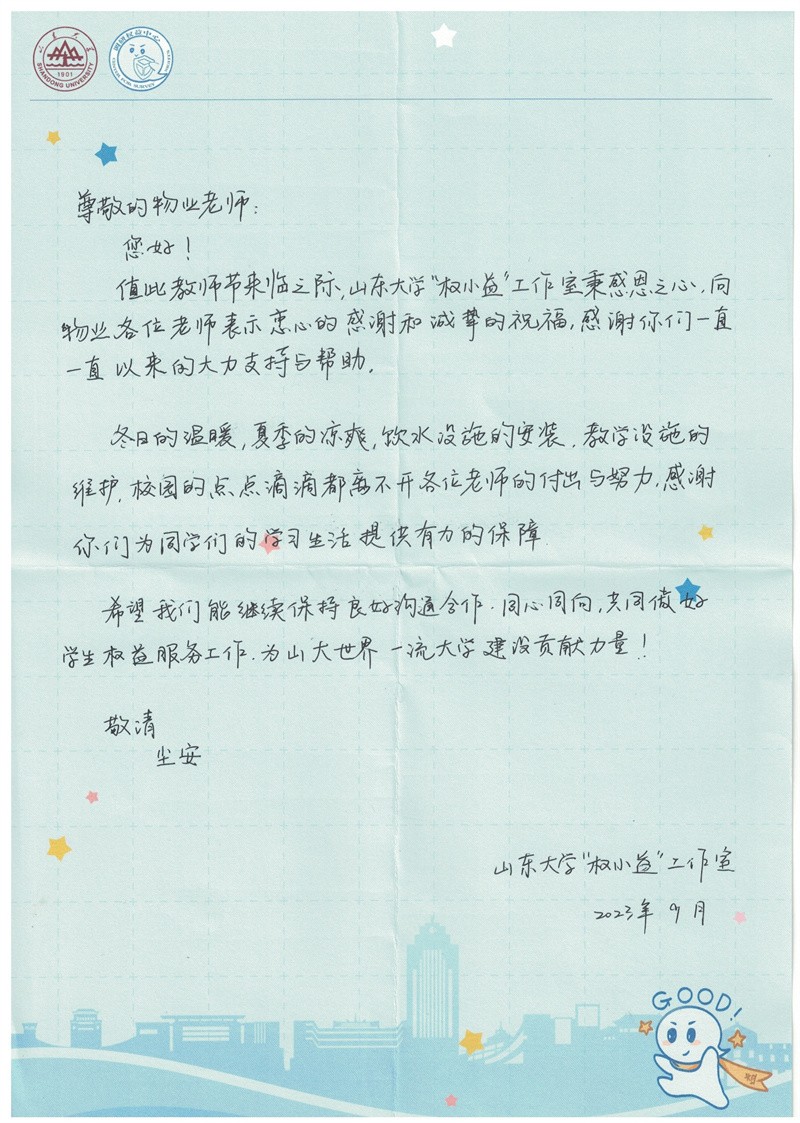 山東大學
SHANDONG UNIVERSITY
1901
调研权益中心
尊敬的物业老师：
您好！
值此教师节来临之际，山东大学“权小益”工作室秉感恩之心，向
物业各位老师表示衷心的感谢和诚挚的祝福，感谢你们一直
一直以来的大力支持与帮助。
冬日的温暖，夏季的凉爽，饮水设施的安装，教学设施的
维护，校园的点点滴滴都离不开各位老师的付出与努力，感谢
你们为同学们的学习生活提供有力的保障
希望我们能继续保持良好沟通合作，同心同向，共同做好
学生权益服务工作，为山大世界一流大学建设贡献力量！
敬清
尘安
山东大学“权小益”工作室
2023年9月
GOOD!